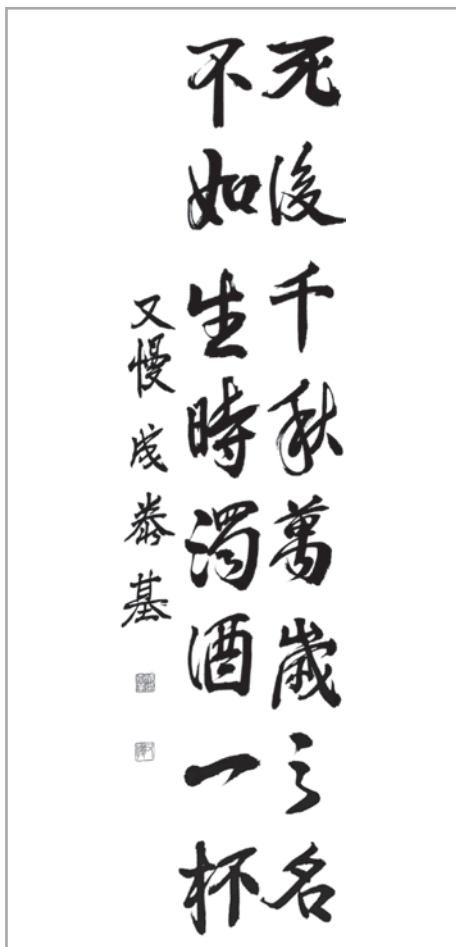 死後千秋萬歲之名
不如生時濁酒一杯
又慢 成泰基